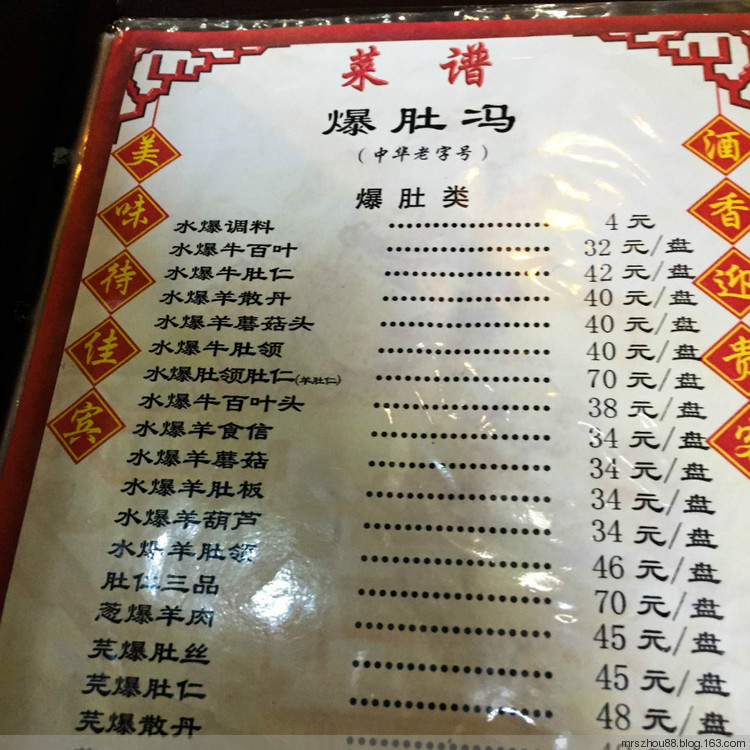 菜谱
爆肚冯
(中华老字号)
爆肚类
水爆调料 4元
水爆牛百叶 32元/盘
水爆牛肚仁 42元/盘
水爆羊散丹 40元/盘
水爆羊蘑菇头 40元/盘
水爆牛肚领 40元/盘
水爆肚领肚仁(羊肚仁) 70元/盘
水爆牛百叶头 38元/盘
水爆羊食信 34元/盘
水爆羊蘑菇 34元/盘
水爆羊肚板 34元/盘
水爆羊葫芦 34元/盘
水爆羊肚领 46元/盘
肚仁三品 70元/盘
葱爆羊肉 45元/盘
芫爆肚丝 45元/盘
芫爆肚仁 48元/盘
芫爆散丹
美味待佳宾
酒香迎贵
mrszhou88.blog.163.com